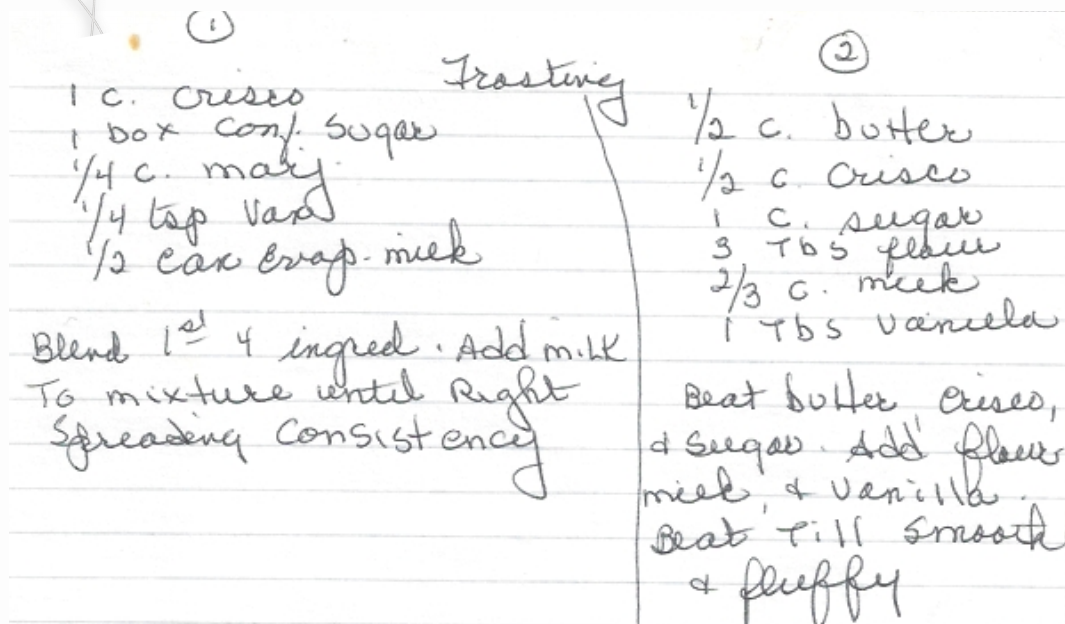 Frosting
①
1 c. crisco
1 box conf. sugar
1/4 c. marj.
1/4 tsp Van
1/2 can Evap. milk
Blend 1st 4 ingred. Add milk
To mixture until Right
Spreading Consistency
②
1/2 c. butter
1/2 c Crisco
1 c. sugar
3 Tbs flour
2/3 c. milk
1 Tbs Vanilla
Beat butter, Crisco,
& sugar. Add flour
milk, & Vanilla.
Beat Till Smooth
& fluffy